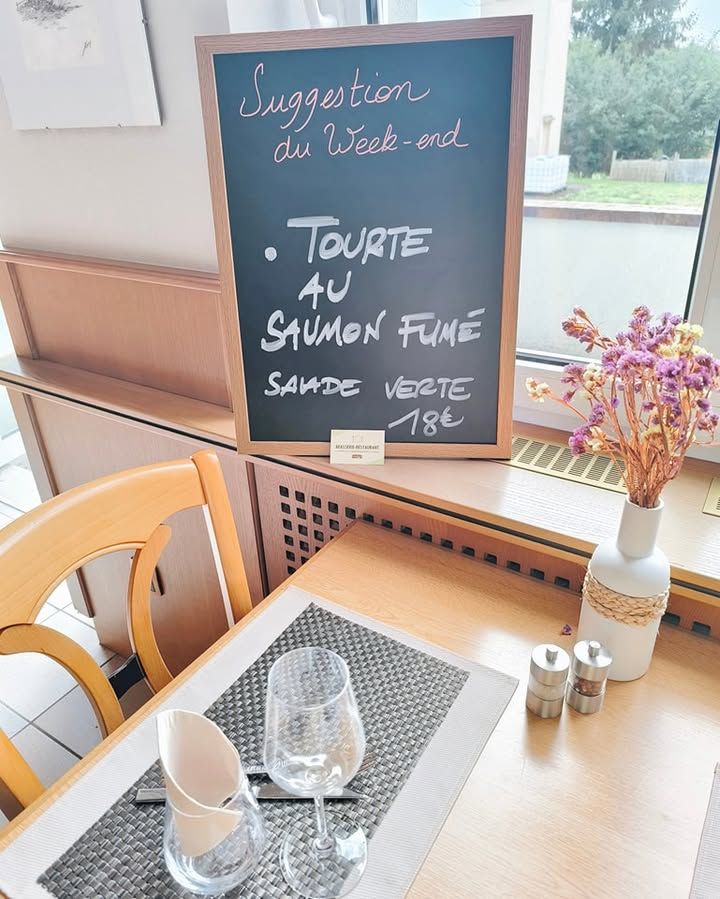 Suggestion
du Week-end
• TOURTE
AU
SAUMON FUMÉ
SALADE VERTE
18€
BRASSERIE-RESTAURANT